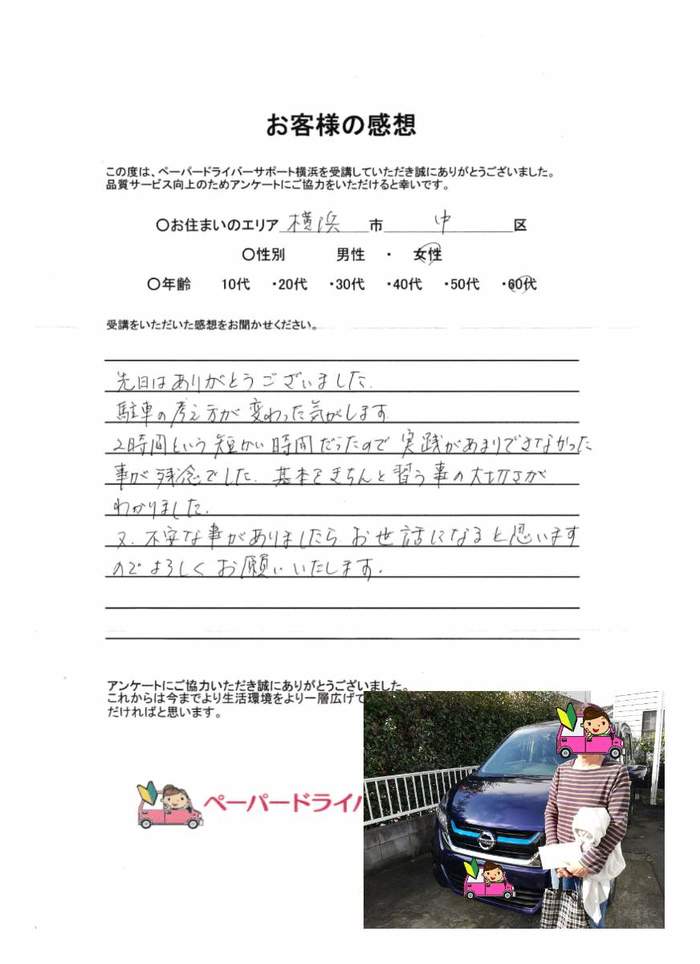 お客様の感想
この度は、ペーパードライバーサポート横浜を受講していただき誠にありがとうございました。
品質サービス向上のためアンケートにご協力をいただけると幸いです。
〇お住まいのエリア 横浜 市 中 区
〇性別 男性 ・ 女性
〇年齢 10代 ・20代 ・30代 ・40代 ・50代 ・60代
受講をいただいた感想をお聞かせください。
先日はありがとうございました。
駐車の考え方が変わった気がします
2時間という短かい時間だったので実践があまりできなかった
事が残念でした。基本をきちんと習う事の大切さが
わかりました。
又、不安な事がありましたら お世話になると思います
のでよろしくお願いいたします。
アンケートにご協力いただき誠にありがとうございました。
これからは今までより生活環境をより一層広げて
だければと思います。
ペーパードライバ